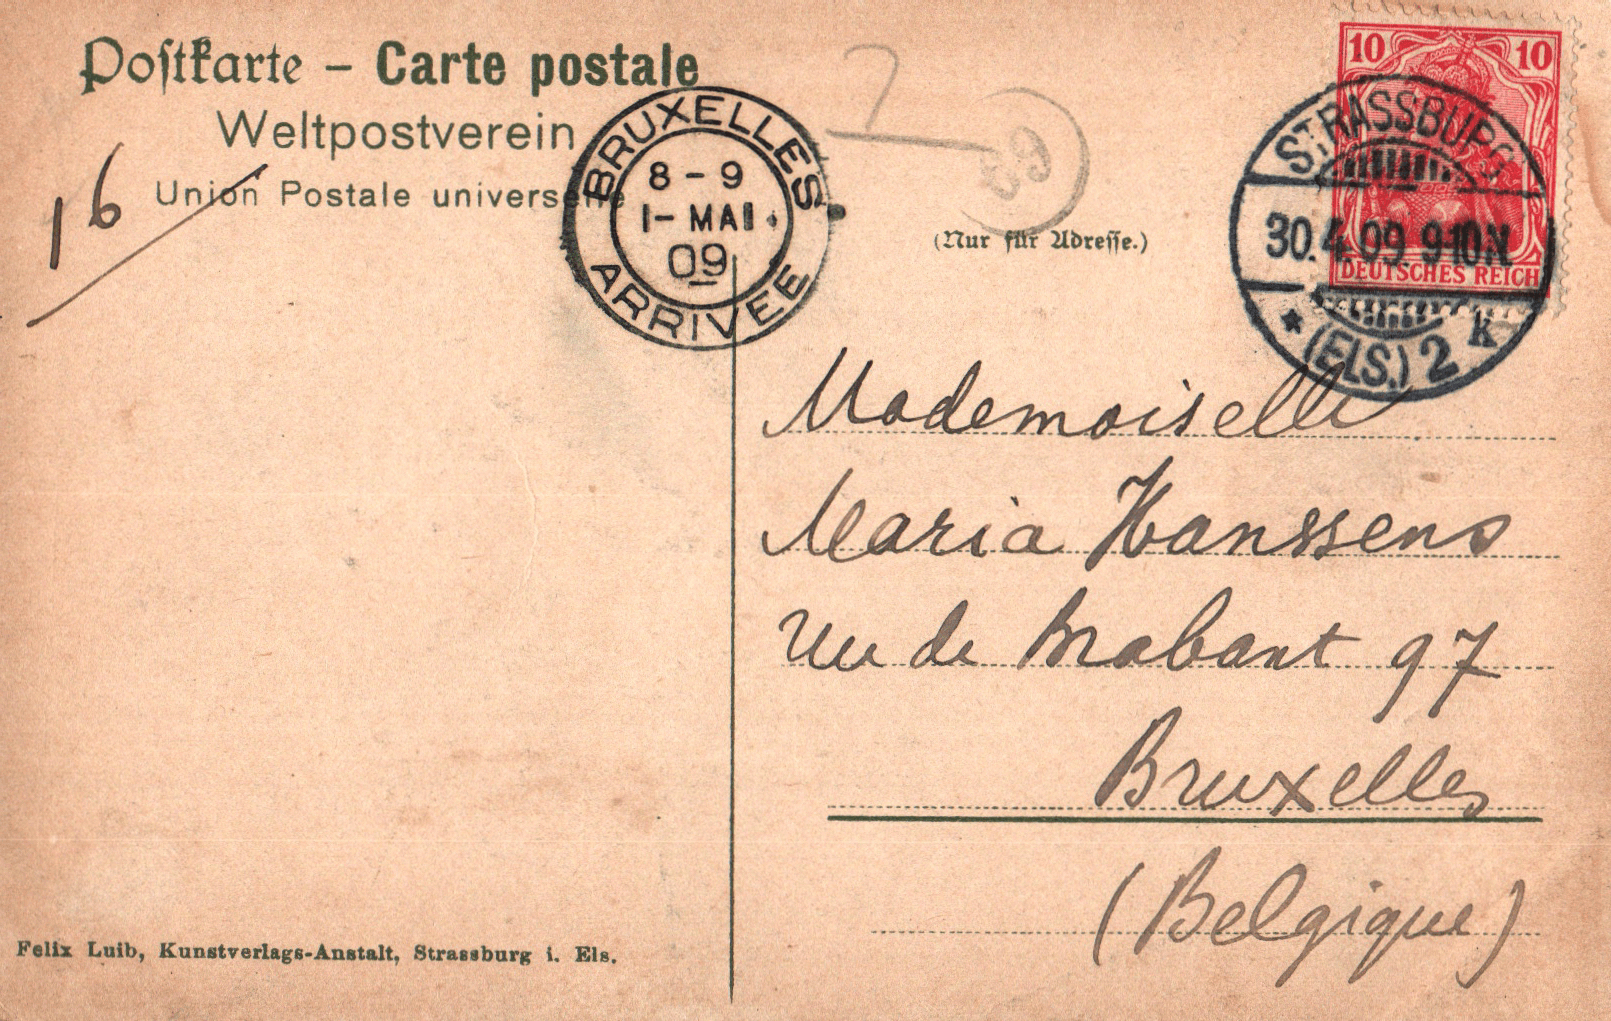 Postkarte – Carte postale
Weltpostverein
Union Postale universelle
16
BRUXELLES
8 - 9
1 - MAI
09
ARRIVEE
63
(Nur für Adresse.)
10 10
DEUTSCHES REICH
STRASSBURG
30.4.09. 9-10 N.
* (ELS.) 2 k
Mademoiselle
Maria Hanssens
rue de Brabant 97
Bruxelles
(Belgique)
Felix Luib, Kunstverlags-Anstalt, Strassburg i. Els.